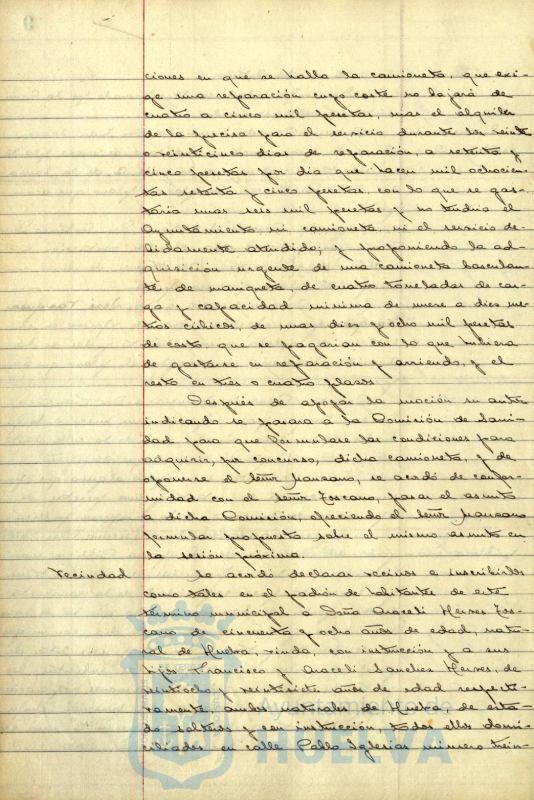 9
ciones en que se halla la camioneta, que exi-
ge una reparación cuyo coste no bajará de
cuatro a cinco mil pesetas, mas el alquiler
de la precisa para el servicio durante los veinte
o veinticinco dias de reparación, a setenta y
cinco pesetas por dia que hacen mil ochocien-
tas setenta y cinco pesetas, con lo que se gas-
taria unas seis mil pesetas y no tendria el
Ayuntamiento ni camioneta ni el servicio de-
bidamente atendido; y proponiendo la ad-
quisición urgente de una camioneta basculan-
te de mangueta, de cuatro toneladas de car-
ga y capacidad minima de nueve a diez me-
tros cúbicos, de unas diez y ocho mil pesetas
de costo, que se pagarian con lo que hubiera
de gastarse en reparación y arriendo, y el
resto en tres o cuatro plazos
Después de apoyar la moción su autor
indicando se pasara a la Comisión de Sani-
dad para que formulase las condiciones para
adquirir, por concurso, dicha camioneta, y de
oponerse el Señor Manzano, se acordó de confor-
midad con el Señor Toscano, pasar el asunto
a dicha Comisión, ofreciendo el Señor Manzano
formular propuesta sobre el mismo asunto en
la sesión próxima.
Vecindad Se acordó declarar vecinos e inscribirlos
como tales en el padrón de habitantes de este
término municipal a Doña Araceli Herves Tos-
cano de cincuenta y ocho años de edad, natu-
ral de Huelva, viuda, con instrucción y a sus
hijos Francisco y Araceli Sanchez Herves, de
veintiocho y veintisiete años de edad respecti-
vamente, ambos naturales de Huelva, de esta-
do solteros y con instrucción, todos ellos domi-
ciliados en calle Pablo Iglesias número trein-
Ayuntamiento
HUELVA